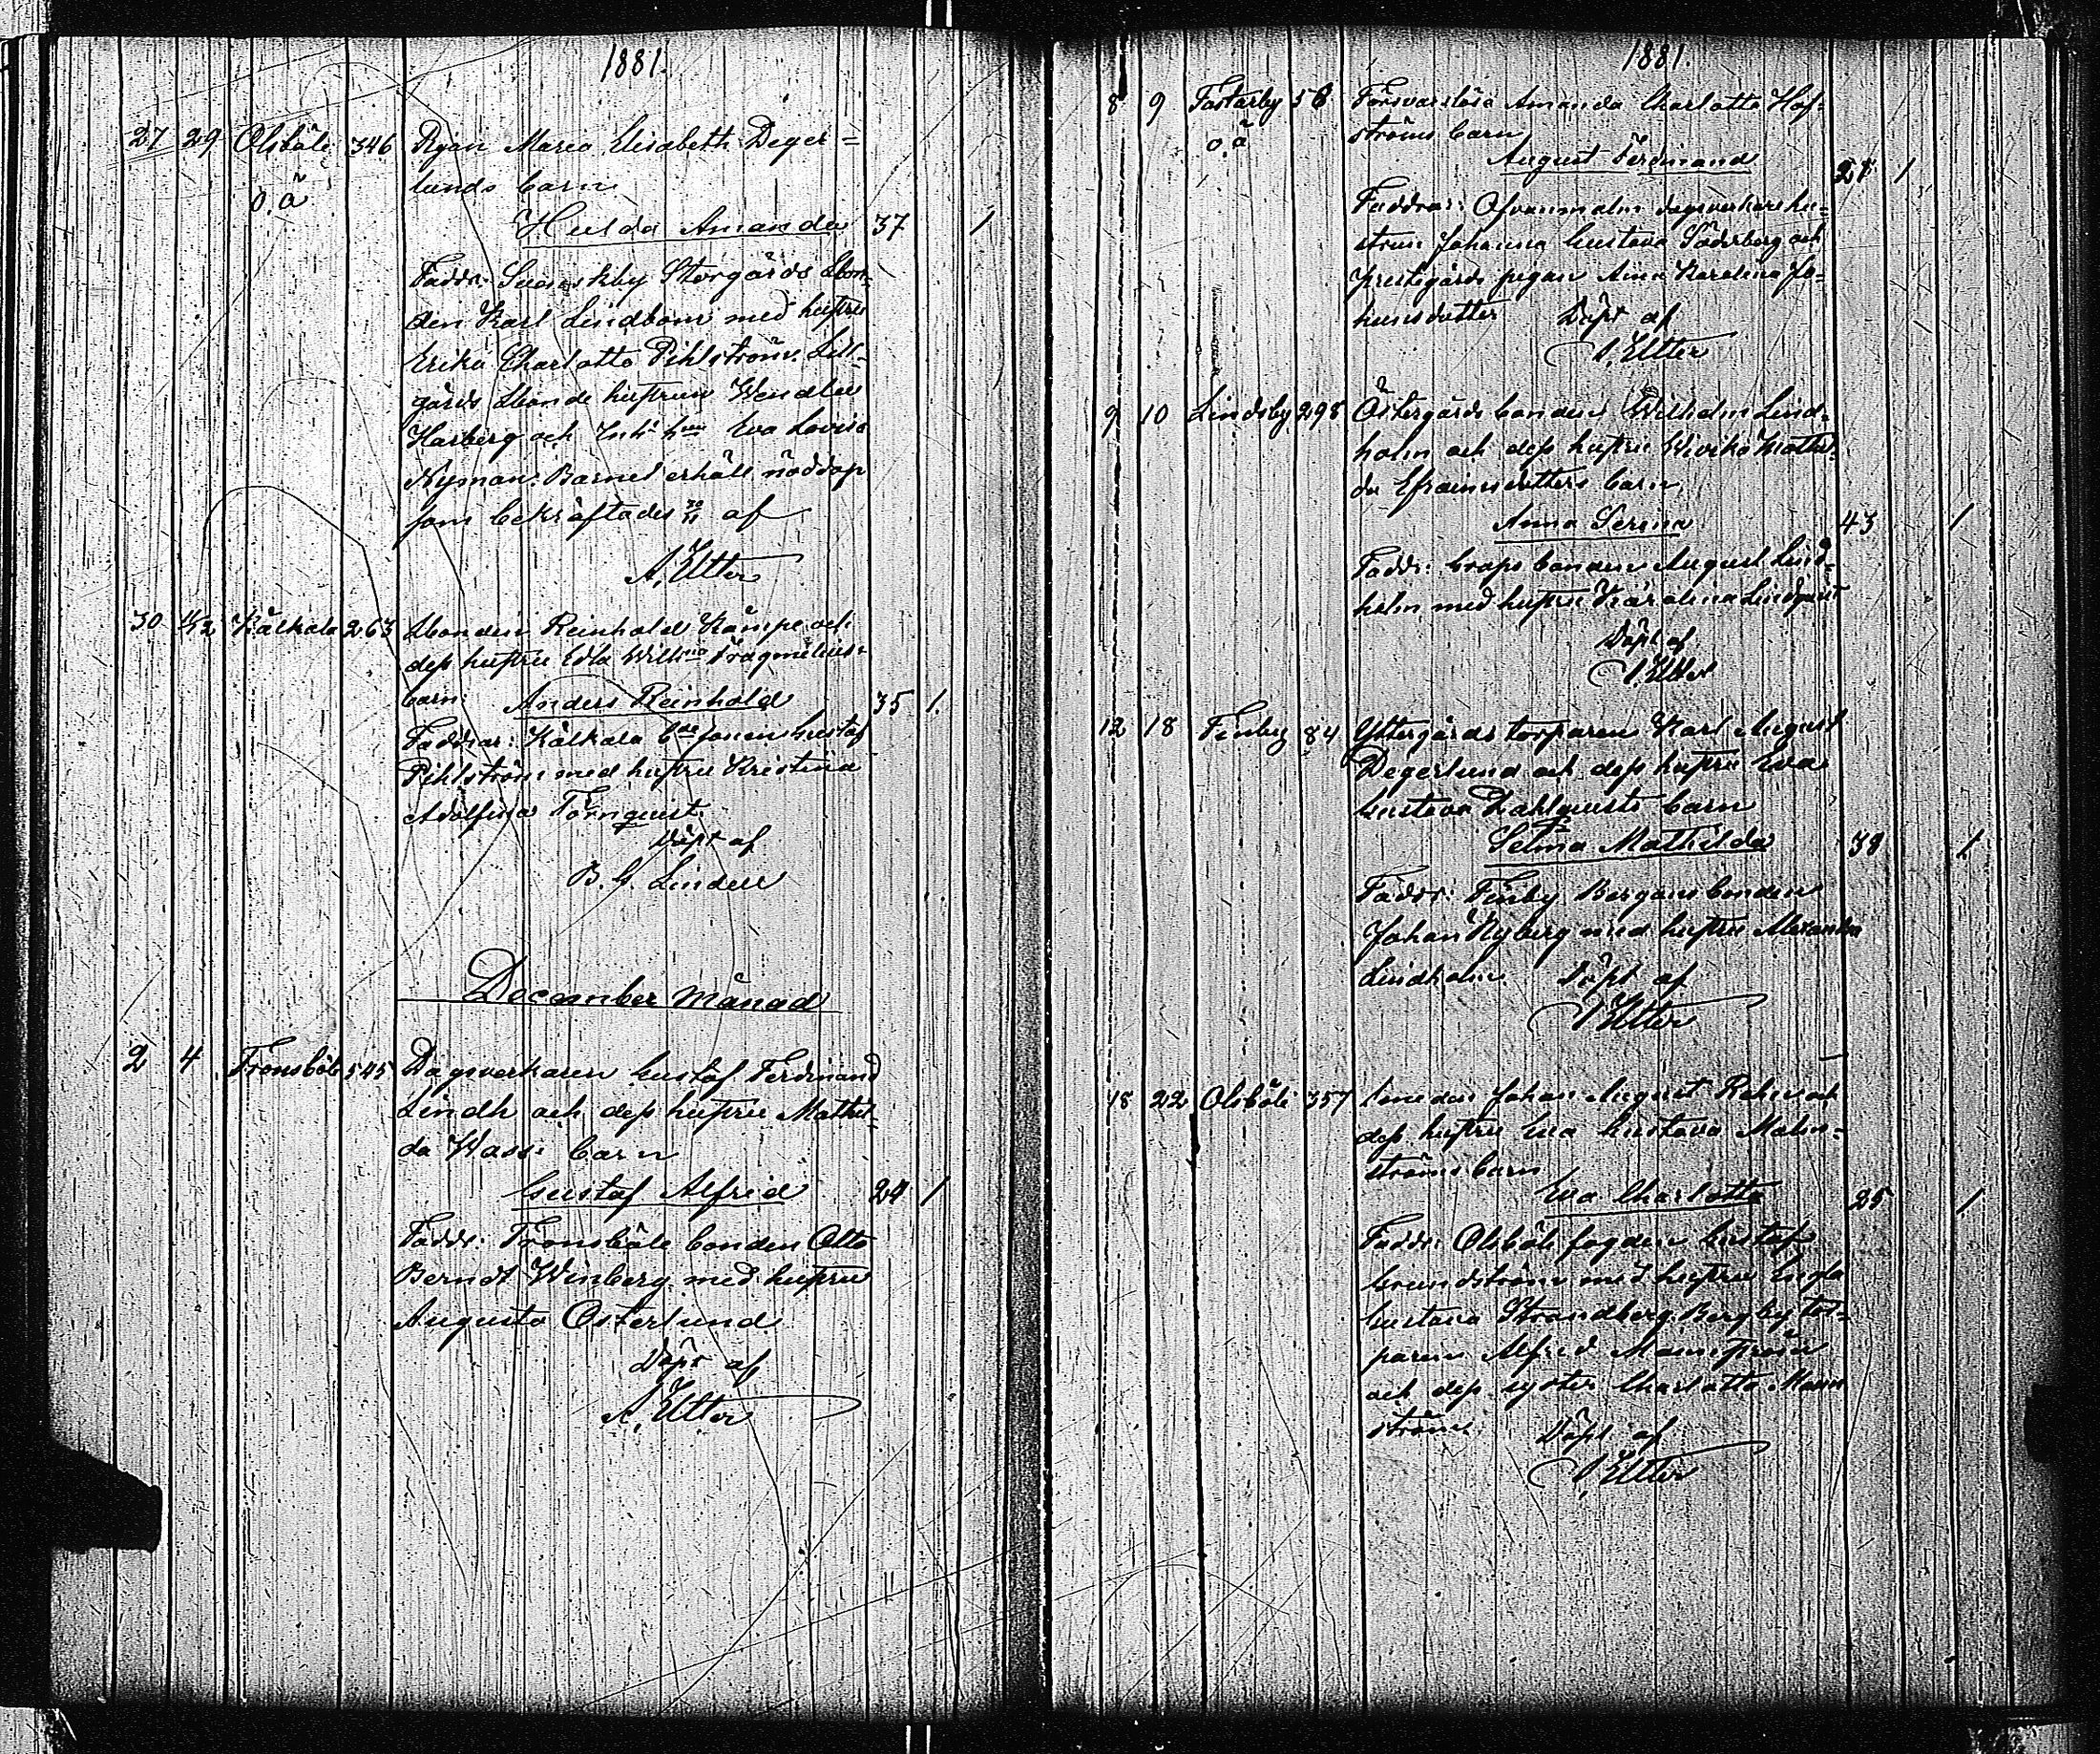 1881.
27 29 Olsböle 346 Pigan Maria Elisabeth Deger=
o. ä lunds barn
Hulda Amanda 37 1
Faddr: Storgårds bon-
den Karl Lindbom med hustru
Erika Charlotta Pihlström, Lill-
gårds bonde hustrun Wendla
Harberg och Eva Lovisa
Nyman. Barnet erhöll nöddop
som bekräftades 30/11 af
A. Elter
30 1/12 Kålkala 263 Bonden Reinhold Kämpe och
dess hustru Edla Willma
barn: Anders Reinhold 35 1.
Faddrar: Kålkala Gustaf
Pihlström med hustru Kristina
Adolfina Törnquist.
Döpt af
B. G. Lindell
December Månad
2 4 Tronsböle 545 Dagsverkaren Gustaf Ferdinand
Lindh och dess hustru Mathil-
da Wass: barn
Gustaf Alfrid 24 1
Faddr: Tronsböle bonden Otto
Berndt Winberg med hustru
Augusta Österlund
Döpt af
A. Elter
1881.
8 9 Tastarby 58 Försvarslösa Amanda Charlotta Hof-
o. ä ströms barn
August Ferdinand 28 1
Faddrar: Ofvanmalm dagsverkare hu-
strun Johanna Gustava Söderberg och
prestgårds pigan Aina Karolina Jo-
hansdotter Döpt af
A. Elter
9 10 Lindsby 298 Östergårds bonden Wilhelm Lind-
holm och dess hustru Wivika Mathil-
da Efraimsdotters barn
Anna Serina 43 1
Faddr: bonden August Lind-
holm med hustru Karolina Lindqvist
Döpt af
A. Elter
12 18 Finby 84 Yttergårds torparen Karl August
Degerlund och dess hustru Eva
Gustava Dahlquists barn
Selma Mathilda 38 1
Faddr: Finby Bergans bonden
Johan Nyberg med hustru Alexandra
Lindholm. Döpt af
A. Elter
18 22 Olsböle 357 Bonden Johan August och
dess hustru Eva Gustava Malm-
ströms barn
Eva Charlotta 25 1
Faddr: Olsböle fogden Gustaf
Grundström med hustru Engla
Gustava Strandberg. Bergby tor-
paren Alfred Malmström
och dess syster Charlotta Malm
ström. Döpt af
A. Elter